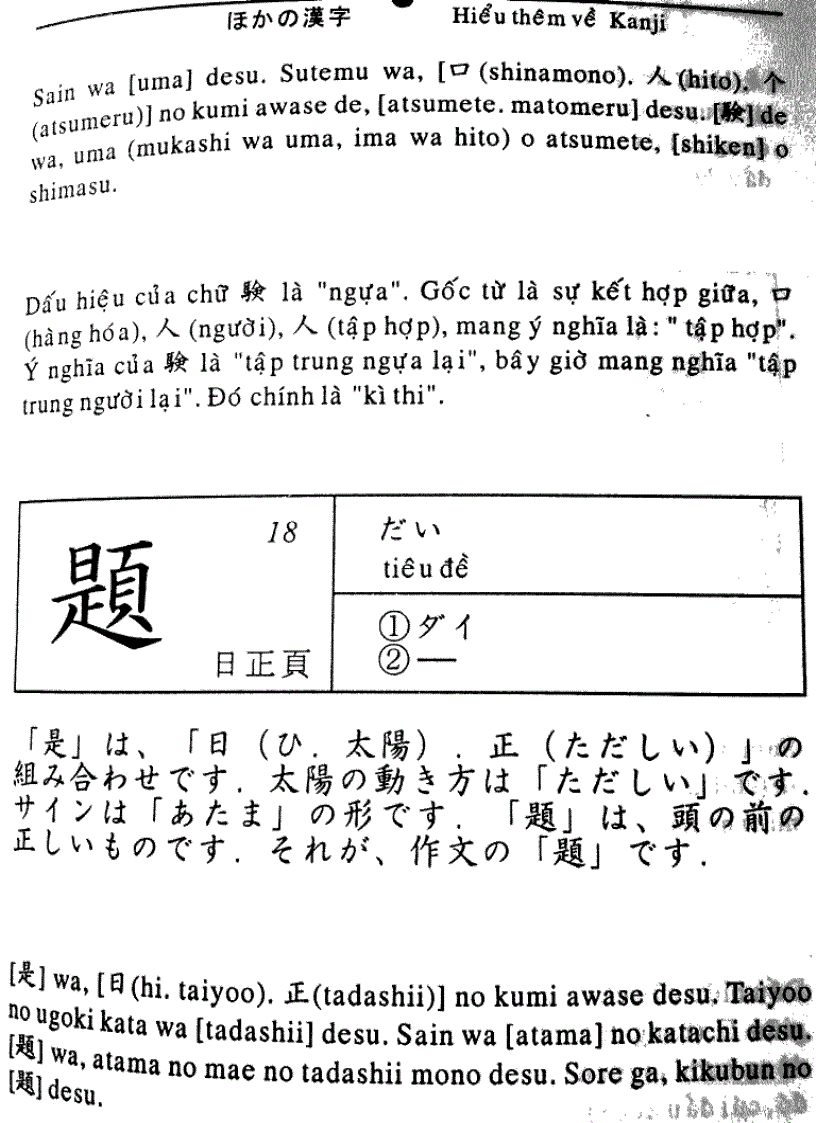 ほかの漢字 Hiểu thêm về Kanji
Sain wa [uma] desu. Sutemu wa, [口 (shinamono). 人 (hito). 个
(atsumeru)] no kumi awase de, [atsumete. matomeru] desu. [験] de
wa, uma (mukashi wa uma, ima wa hito) o atsumete, [shiken] o
shimasu.
Dấu hiệu của chữ 験 là "ngựa". Gốc từ là sự kết hợp giữa, 口
(hàng hóa), 人 (người), 人 (tập hợp), mang ý nghĩa là: " tập hợp".
Ý nghĩa của 験 là "tập trung ngựa lại", bây giờ mang nghĩa "tập
trung người lại". Đó chính là "kì thi".
題
18
日正頁
だい
tiêu đề
①ダイ
②—
「是」は、「日(ひ. 太陽). 正(ただしい)」の
組み合わせです. 太陽の動き方は「ただしい」です.
サインは「あたま」の形です. 「題」は、頭の前の
正しいものです. それが、作文の「題」です.
[是] wa, [日(hi. taiyoo). 正(tadashii)] no kumi awase desu. Taiyoo
no ugoki kata wa [tadashii] desu. Sain wa [atama] no katachi desu.
[題] wa, atama no mae no tadashii mono desu. Sore ga, kikubun no
[題] desu.